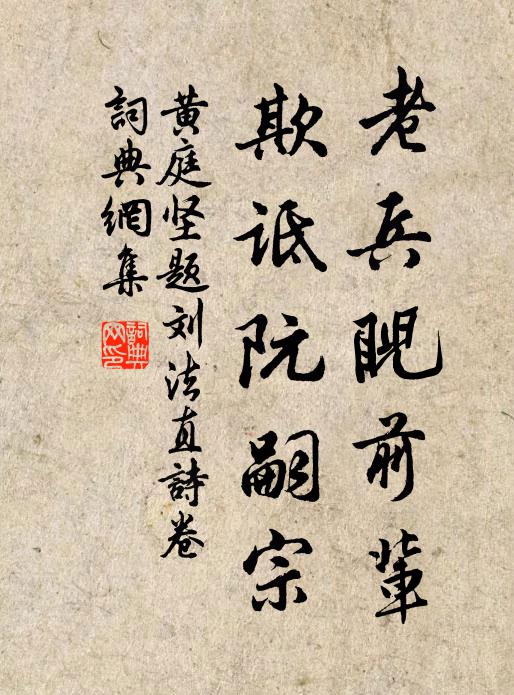 老兵睨前輩
欺诋阮嗣宗
黄庭坚题刘法直詩卷
詞典網集
詞典网印